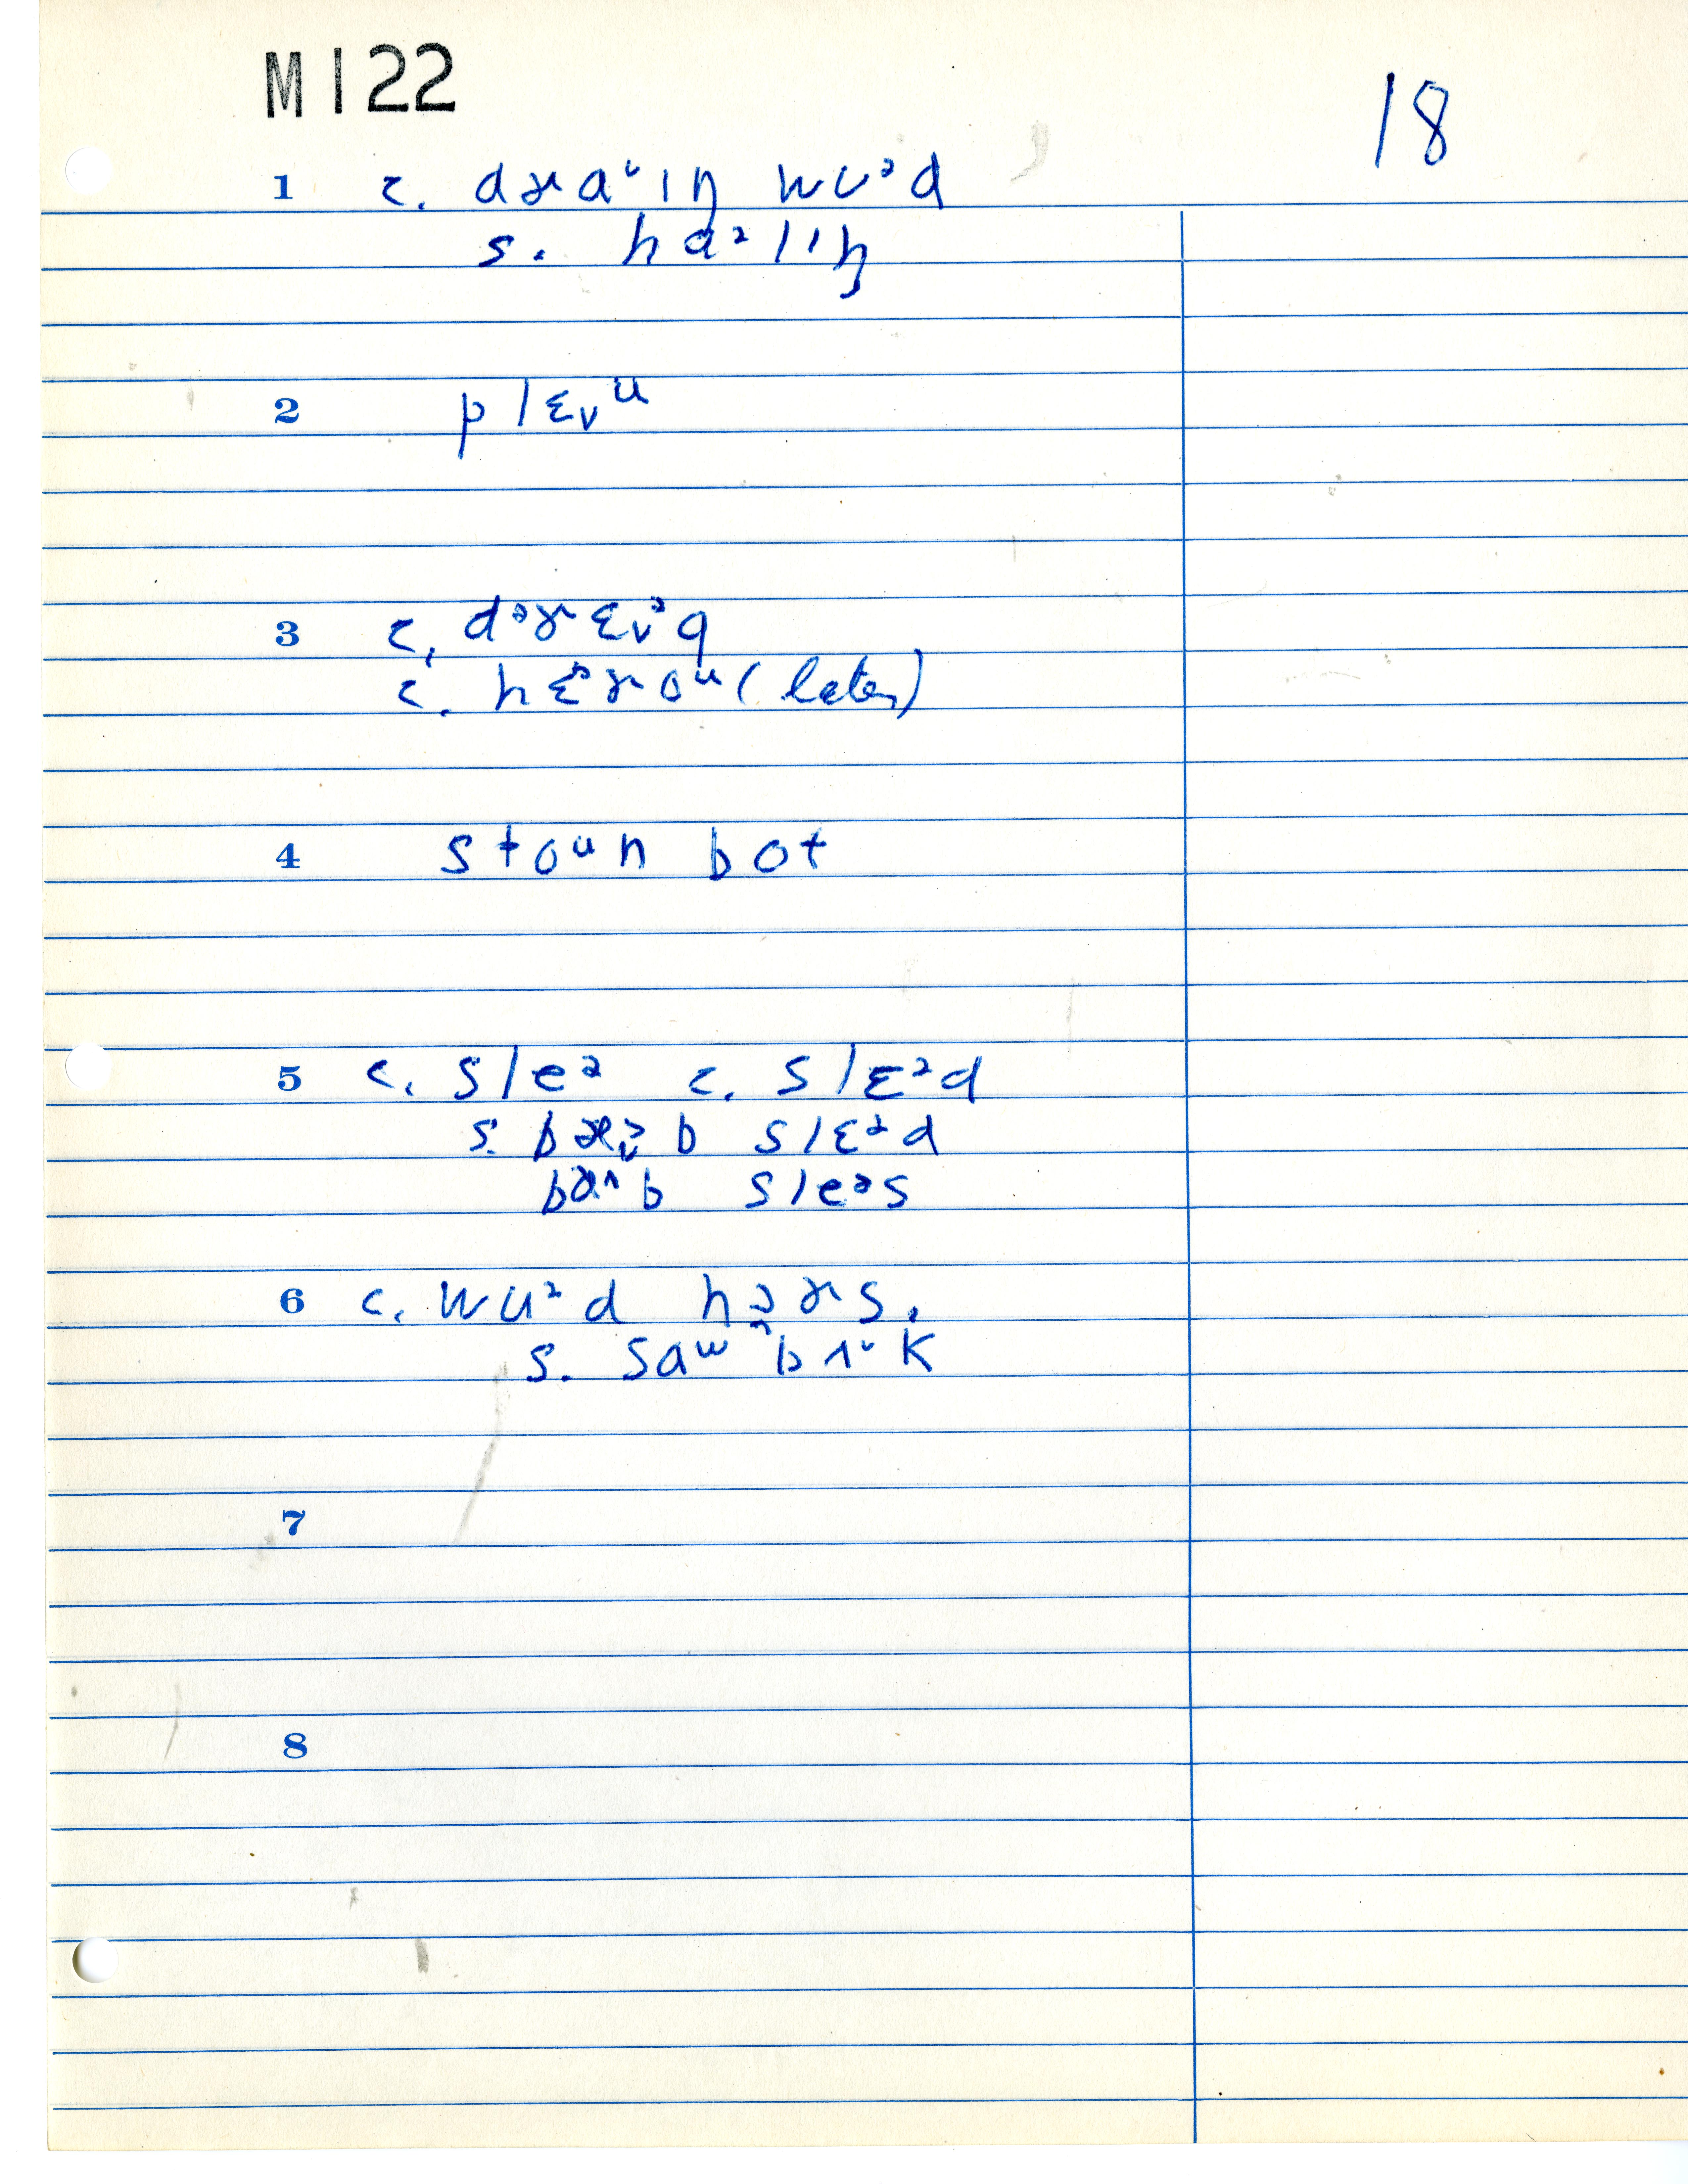 M122
18
1 c. dɚaᶷɪŋ wᴜᵊd
s. haᵊlɪŋ
2 plɛ˅ᵘ
3 c. dᵊɚɛ˅ᵊg
c. hɛᵊɚoᵘ (later)
4 stoᵘn bot
5 c. sleᵊ c. slɛᵊd
s. slɛᵊd
sleᵊs
6 c. wuᵊd hɔɚs.
s. saᵚbʌᶷk
7
8